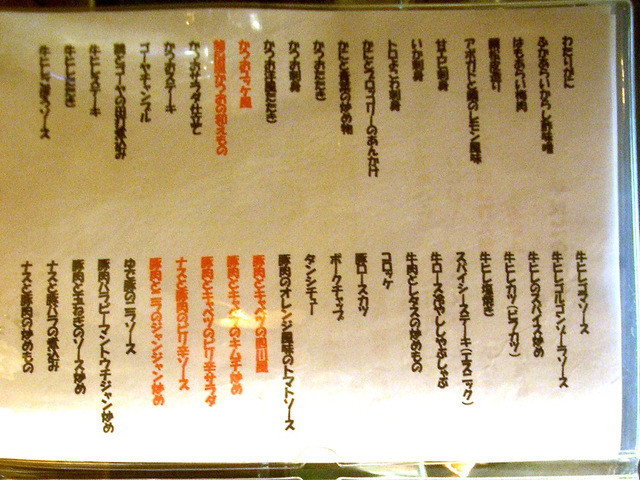 わたりがに
ふかあらいからし酢味噌
はもあらい梅肉
鯛姿造り
アボガドと鯛のレモン風味
甘エビ刺身
いか刺身
トロまぐろ刺身
かにとブロッコリーのあんかけ
かにと青菜の炒め物
かつおたたき
かつお刺身
かつお洋風たたき
かつおユッケ風
かつおの和えもの
かつおサラダ仕立て
かつおステーキ
ゴーヤチャンプル
豚とゴーヤの田舎煮込み
牛ヒレステーキ
牛ヒレたたき
牛ヒレ
牛ヒレゴマソース
牛ヒレゴルゴンゾーラソース
牛ヒレのスパイス炒め
牛ヒレカツ(ビフカツ)
牛ヒレ塩焼き
スパイシーステーキ(エスニック)
牛ロース冷やししゃぶしゃぶ
牛肉とレタスの炒めもの
コロッケ
豚ロースカツ
ポークチャップ
タンシチュー
豚肉のオレンジ風味のトマトソース
豚肉とキャベツの四川風
豚肉とキャベツのキムチ炒め
豚肉とキャベツのピリ辛サラダ
ナスと豚肉のピリ辛ソース
豚肉とニラのジャンジャン炒め
ゆで豚のニラソース
豚肉バラピーマントウチジャン炒め
豚肉と玉ねぎのソース炒め
ナスと豚バラの煮込み
ナスと豚肉の炒めもの